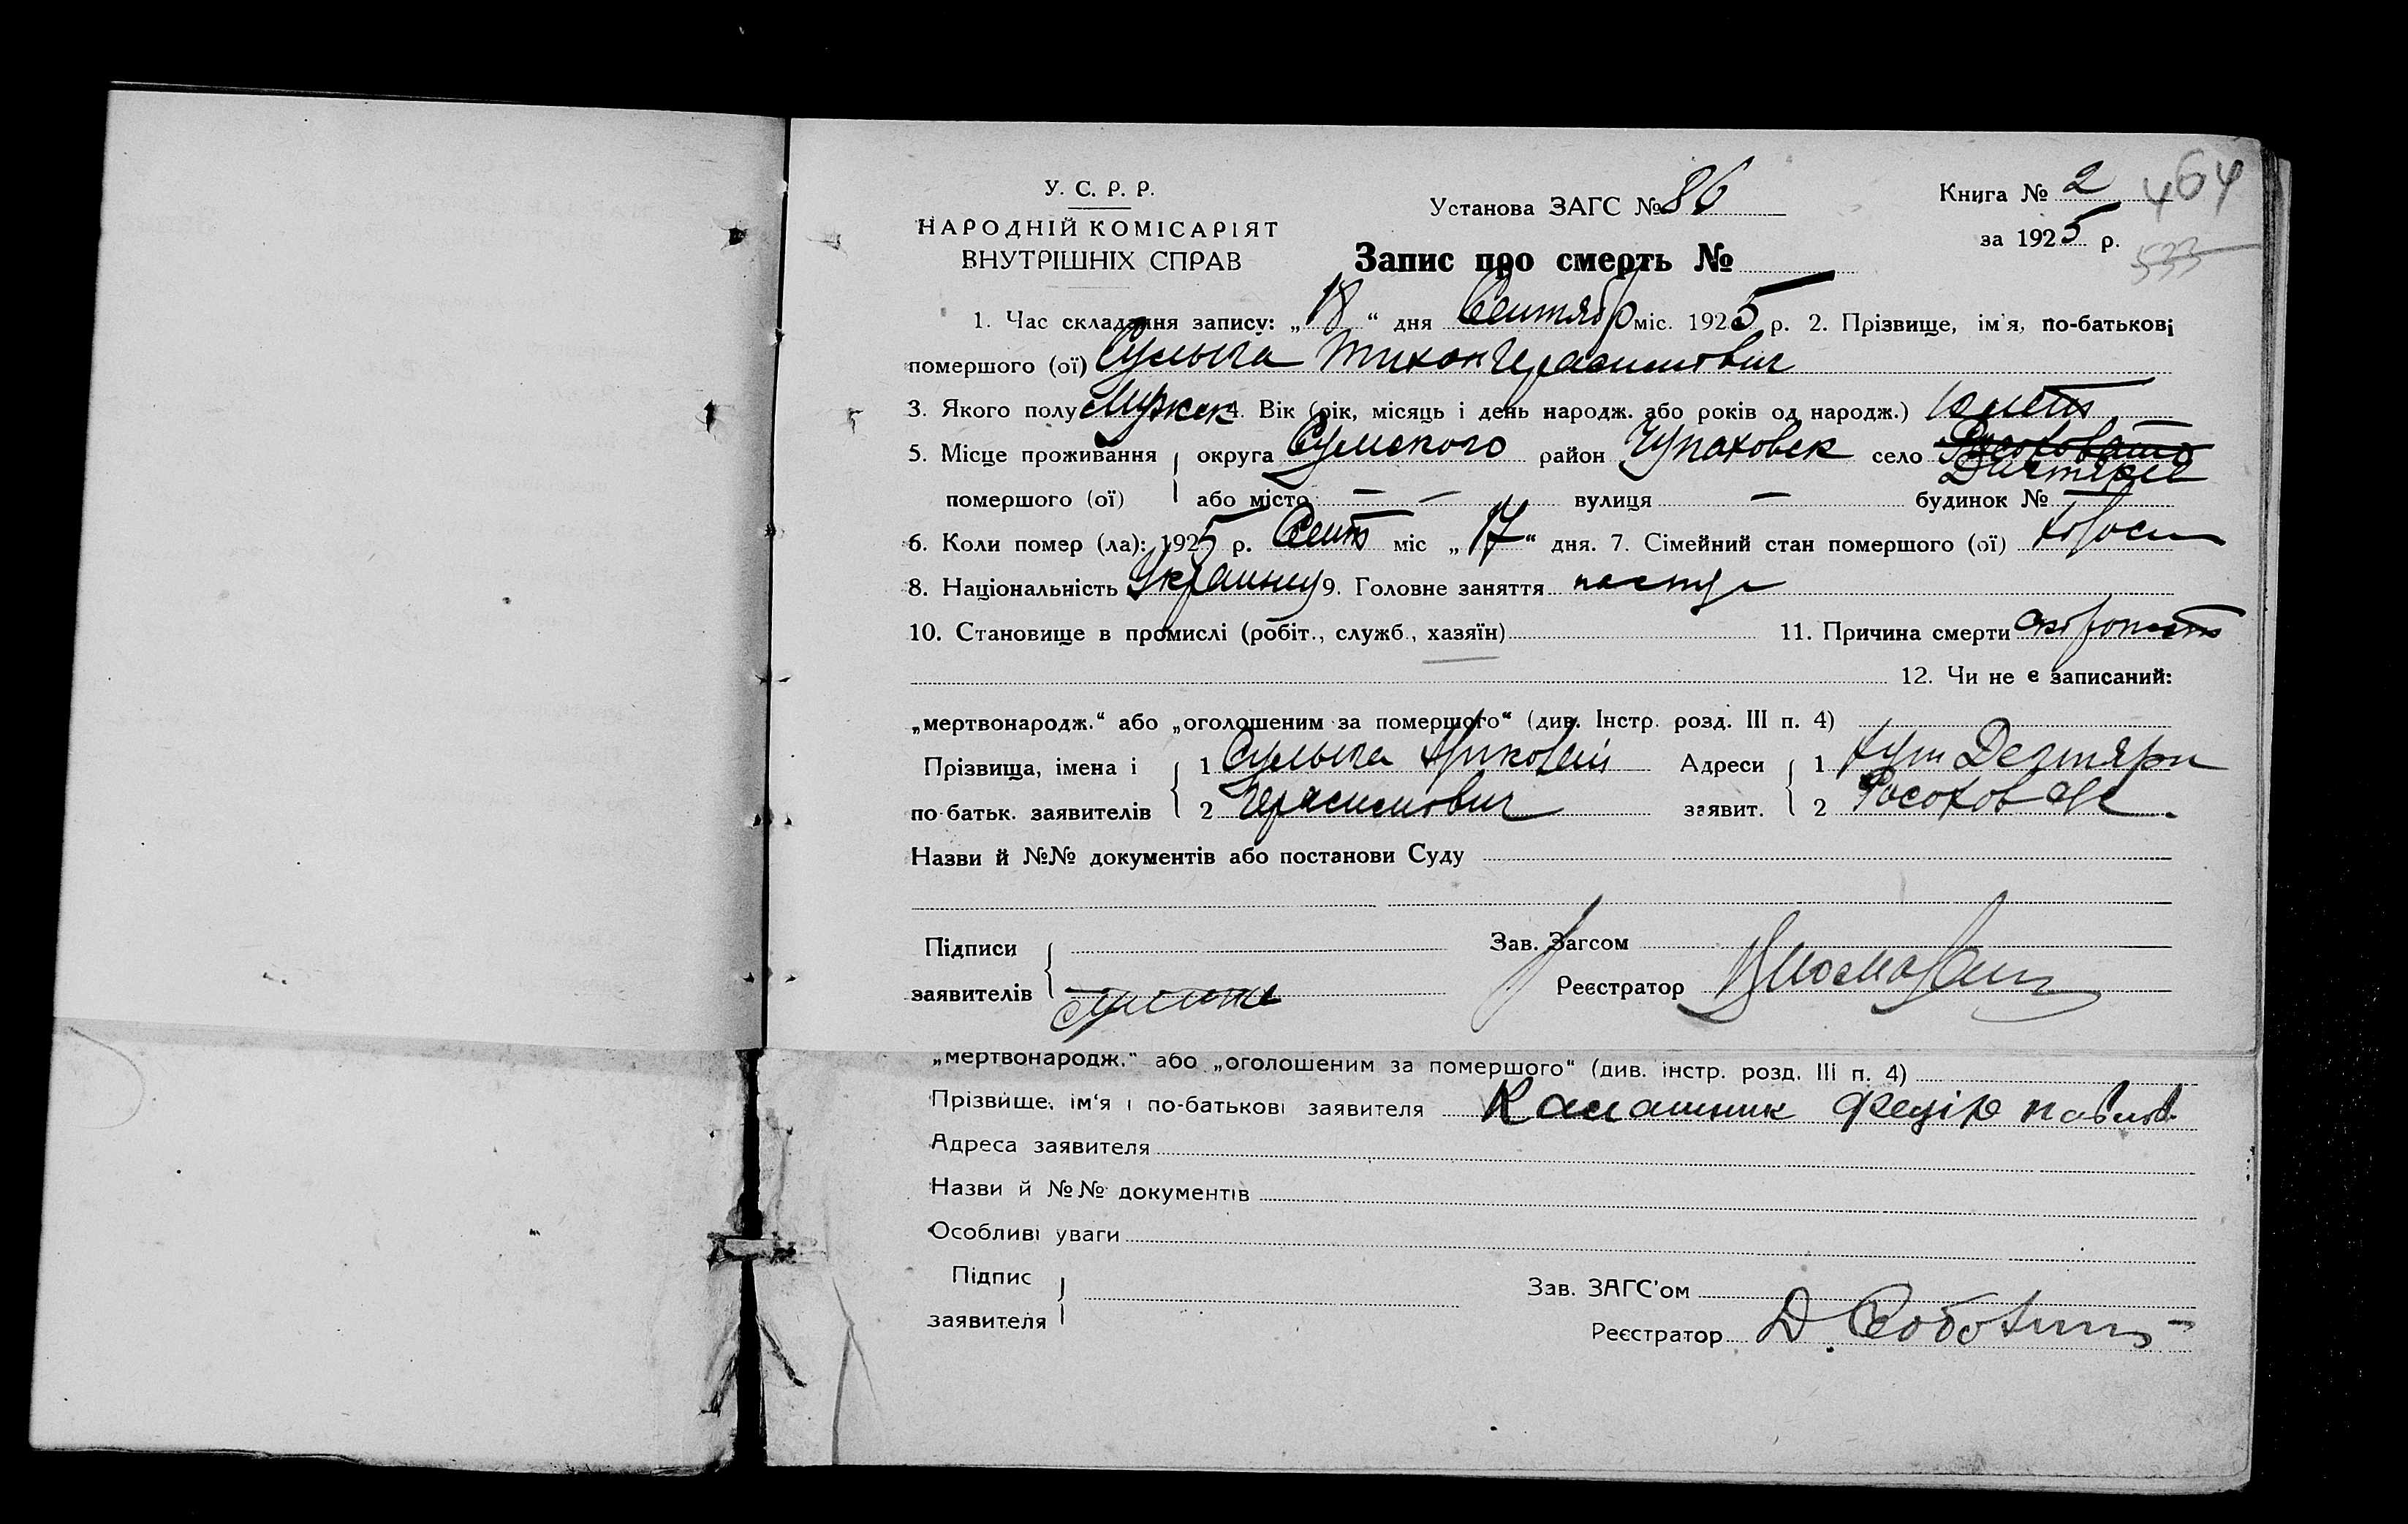 У. С. Р. Р.
НАРОДНІЙ КОМІСАРІЯТ
ВНУТРІШНІХ СПРАВ
Установа ЗАГС № 86
Книга № 2
464
за 1925 р.
533
Запис про смерть №
1. Час складання запису: „18“ дня Сентябр міс. 1925 р. 2. Прізвище, ім'я, по-батькові
помершого (ої) Сульига Тихон Герасимович
3. Якого полу Мужск 4. Вік (рік, місяць і день народж. або років од народж.) лет
5. Місце проживання округа Сумского район Чупаховск село Росоховато
Дихтярев
помершого (ої) або місто — — вулиця — будинок № —
6. Коли помер (ла): 1925 р. Сент міс „17“ дня. 7. Сімейний стан помершого (ої) холост
8. Національність Украинец 9. Головне заняття пастух
10. Становище в промислі (робіт., служб., хазяїн) 11. Причина смерти
12. Чи не є записаний:
„мертвонародж.“ або „оголошеним за помершого“ (див. Інстр. розд. III п. 4)
Прізвища, імена і 1 Сульига Адреси 1 хут Дегтяри
по-батьк. заявителів 2 Герасимович заявит. 2
Назви й №№ документів або постанови Суду
Підписи Зав. Загсом
заявителів Реєстратор
„мертвонародж.“ або „оголошеним за помершого“ (див. інстр. розд. III п. 4)
Прізвище, ім'я і по-батькові заявителя Калашник Федір Павлов.
Адреса заявителя
Назви й №№ документів
Особливі уваги
Підпис Зав. ЗАГС'ом
заявителя Реєстратор Д